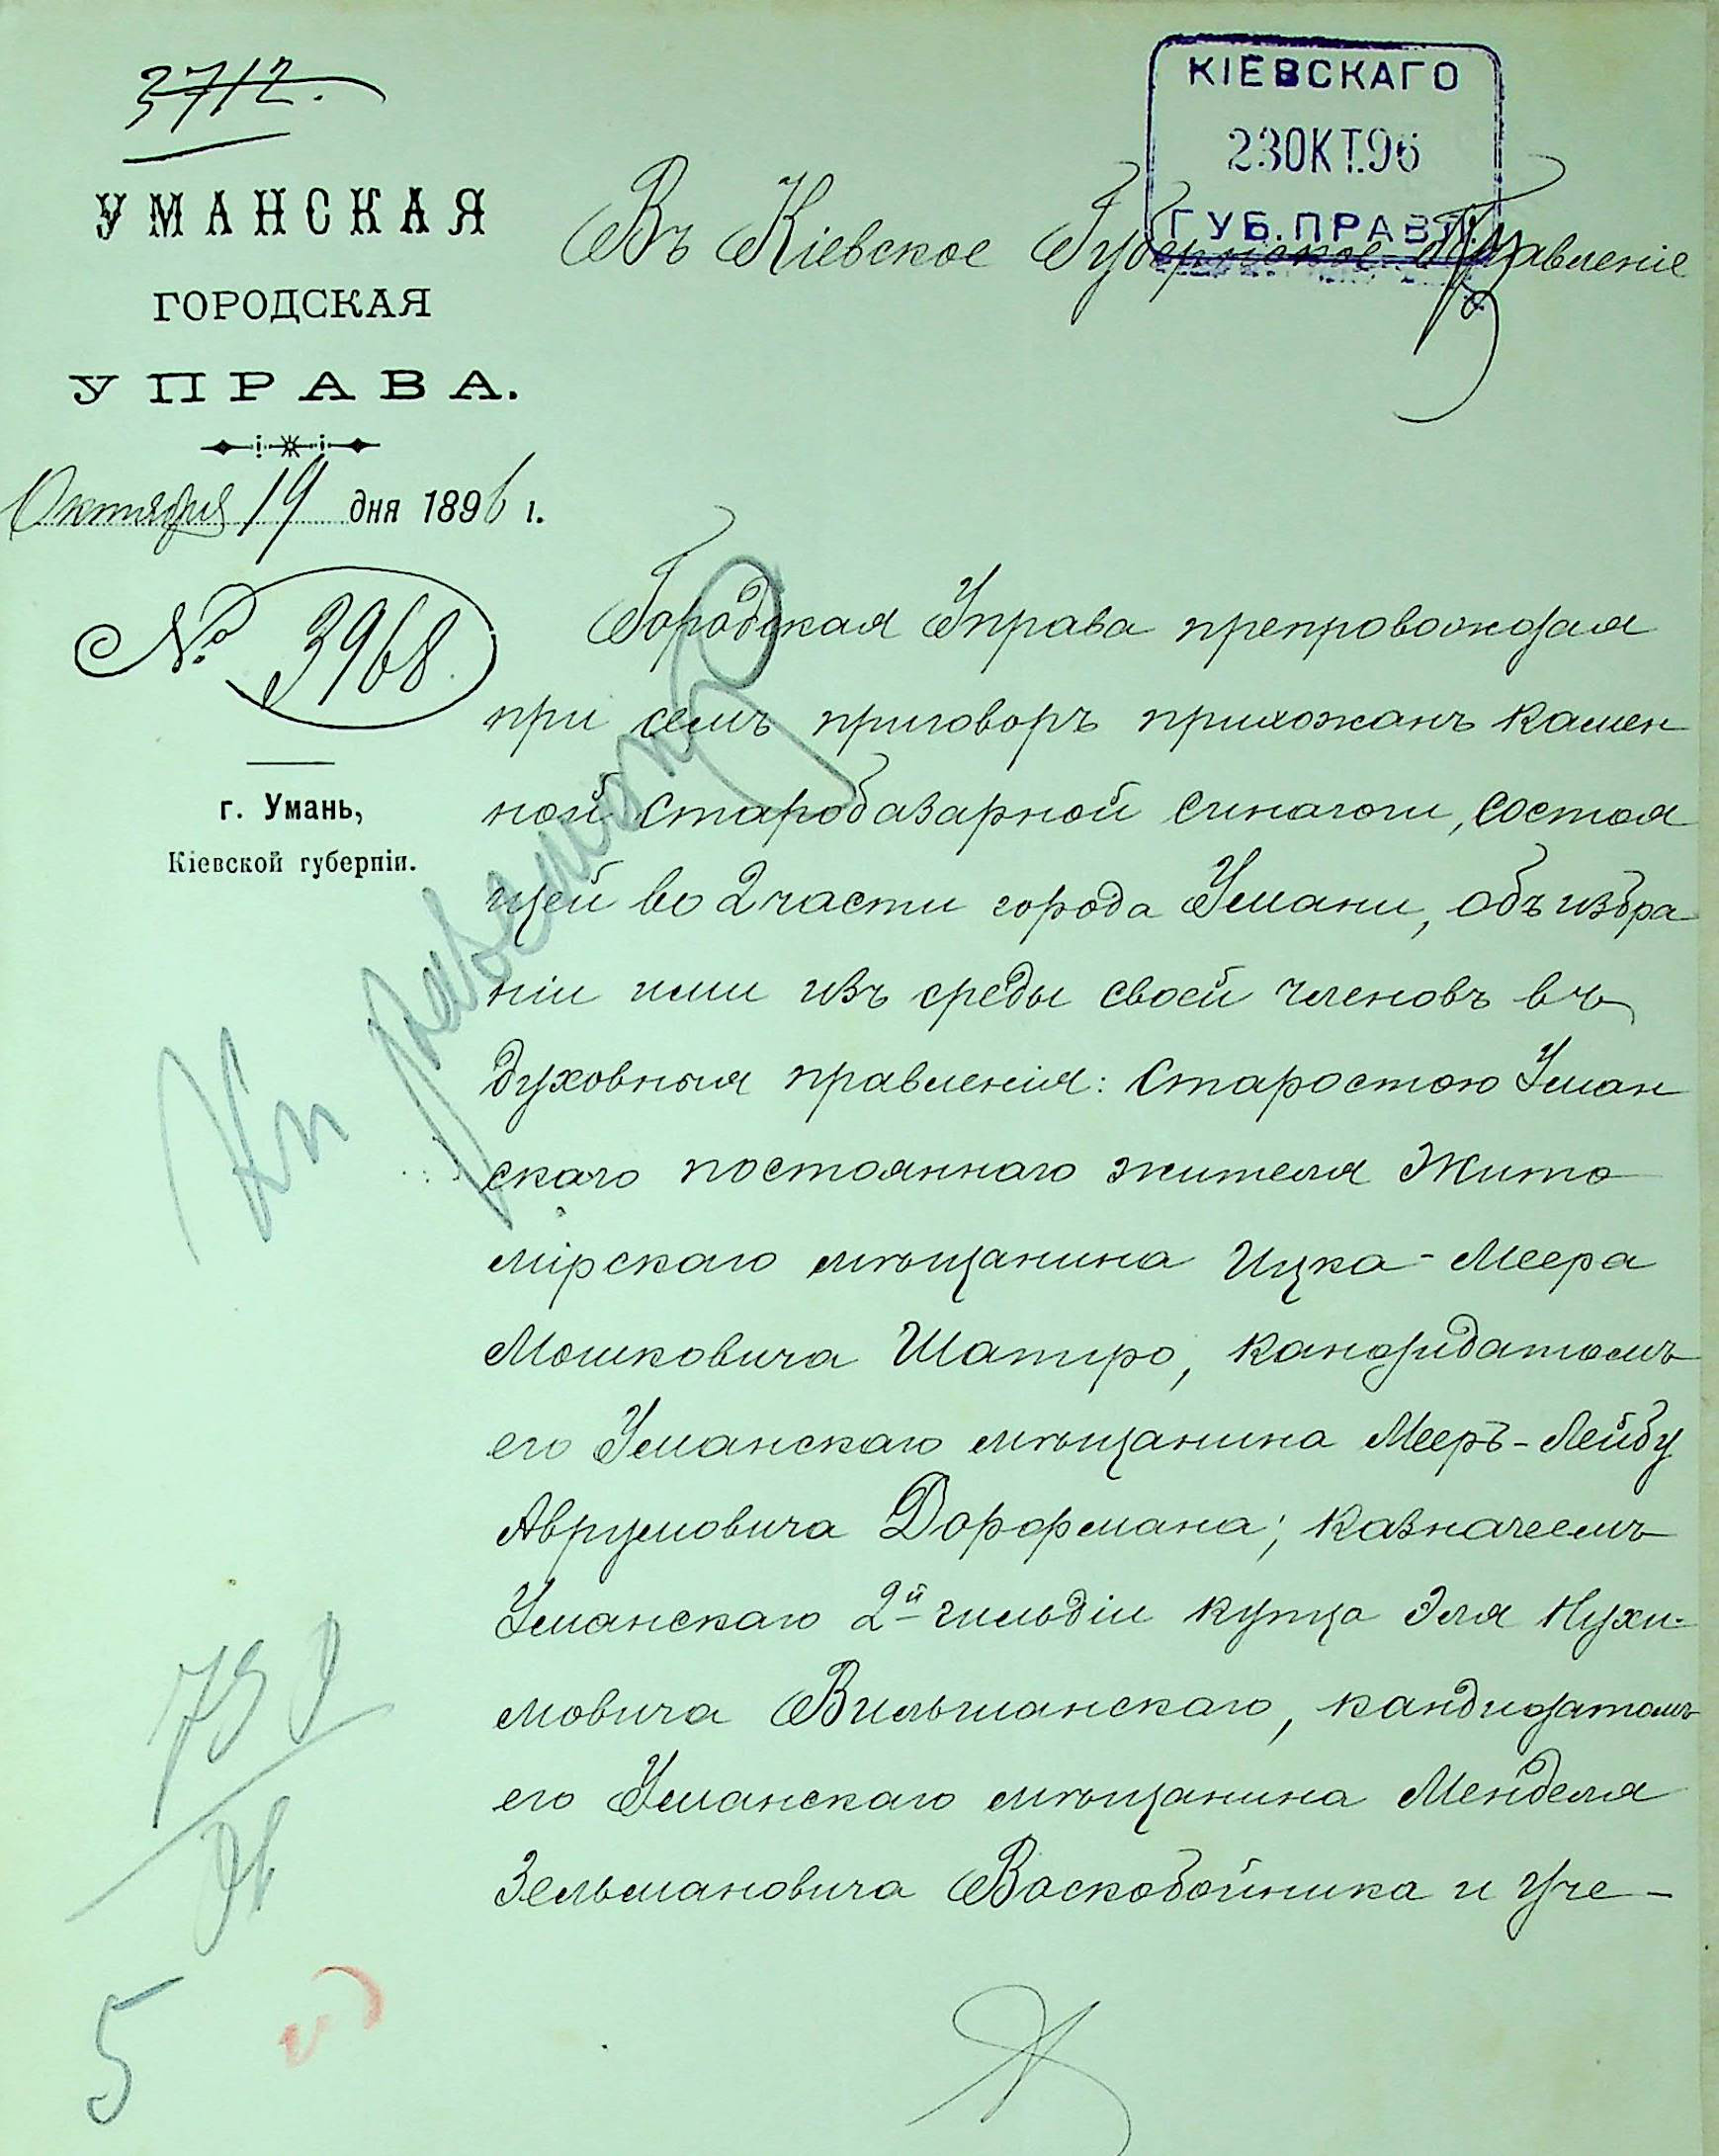 3712.
КІЕВСКАГО
23 ОКТ. 96
ГУБ. ПРАВЛ.
УМАНСКАЯ
ГОРОДСКАЯ
УПРАВА.
Октября 19 дня 1896 г.
№ 3968.
г. Умань,
Кіевской губерніи.
Въ Кіевское Губернское Правленіе
Городская Управа препровождая
при семъ приговоръ прихожанъ камен
ной Старобазарной синагоги, состоя
щей во 2 части города Умани, объ избра
ніи ими изъ среды своей членовъ въ
духовныя правленія: Старостою Уман
скаго постояннаго жителя Жито
мірскаго мѣщанина Ицка-Меера
Мошковича Шапиро, кандидатомъ
его Уманскаго мѣщанина Мееръ-Лейбу
Аврумовича Дорфмана; казначеемъ
Уманскаго 2й гильдіи купца Эля Нухи-
мовича Вильшанскаго, кандидатомъ
его Уманскаго мѣщанина Менделя
Зельмановича Воскобойника и уче-
5